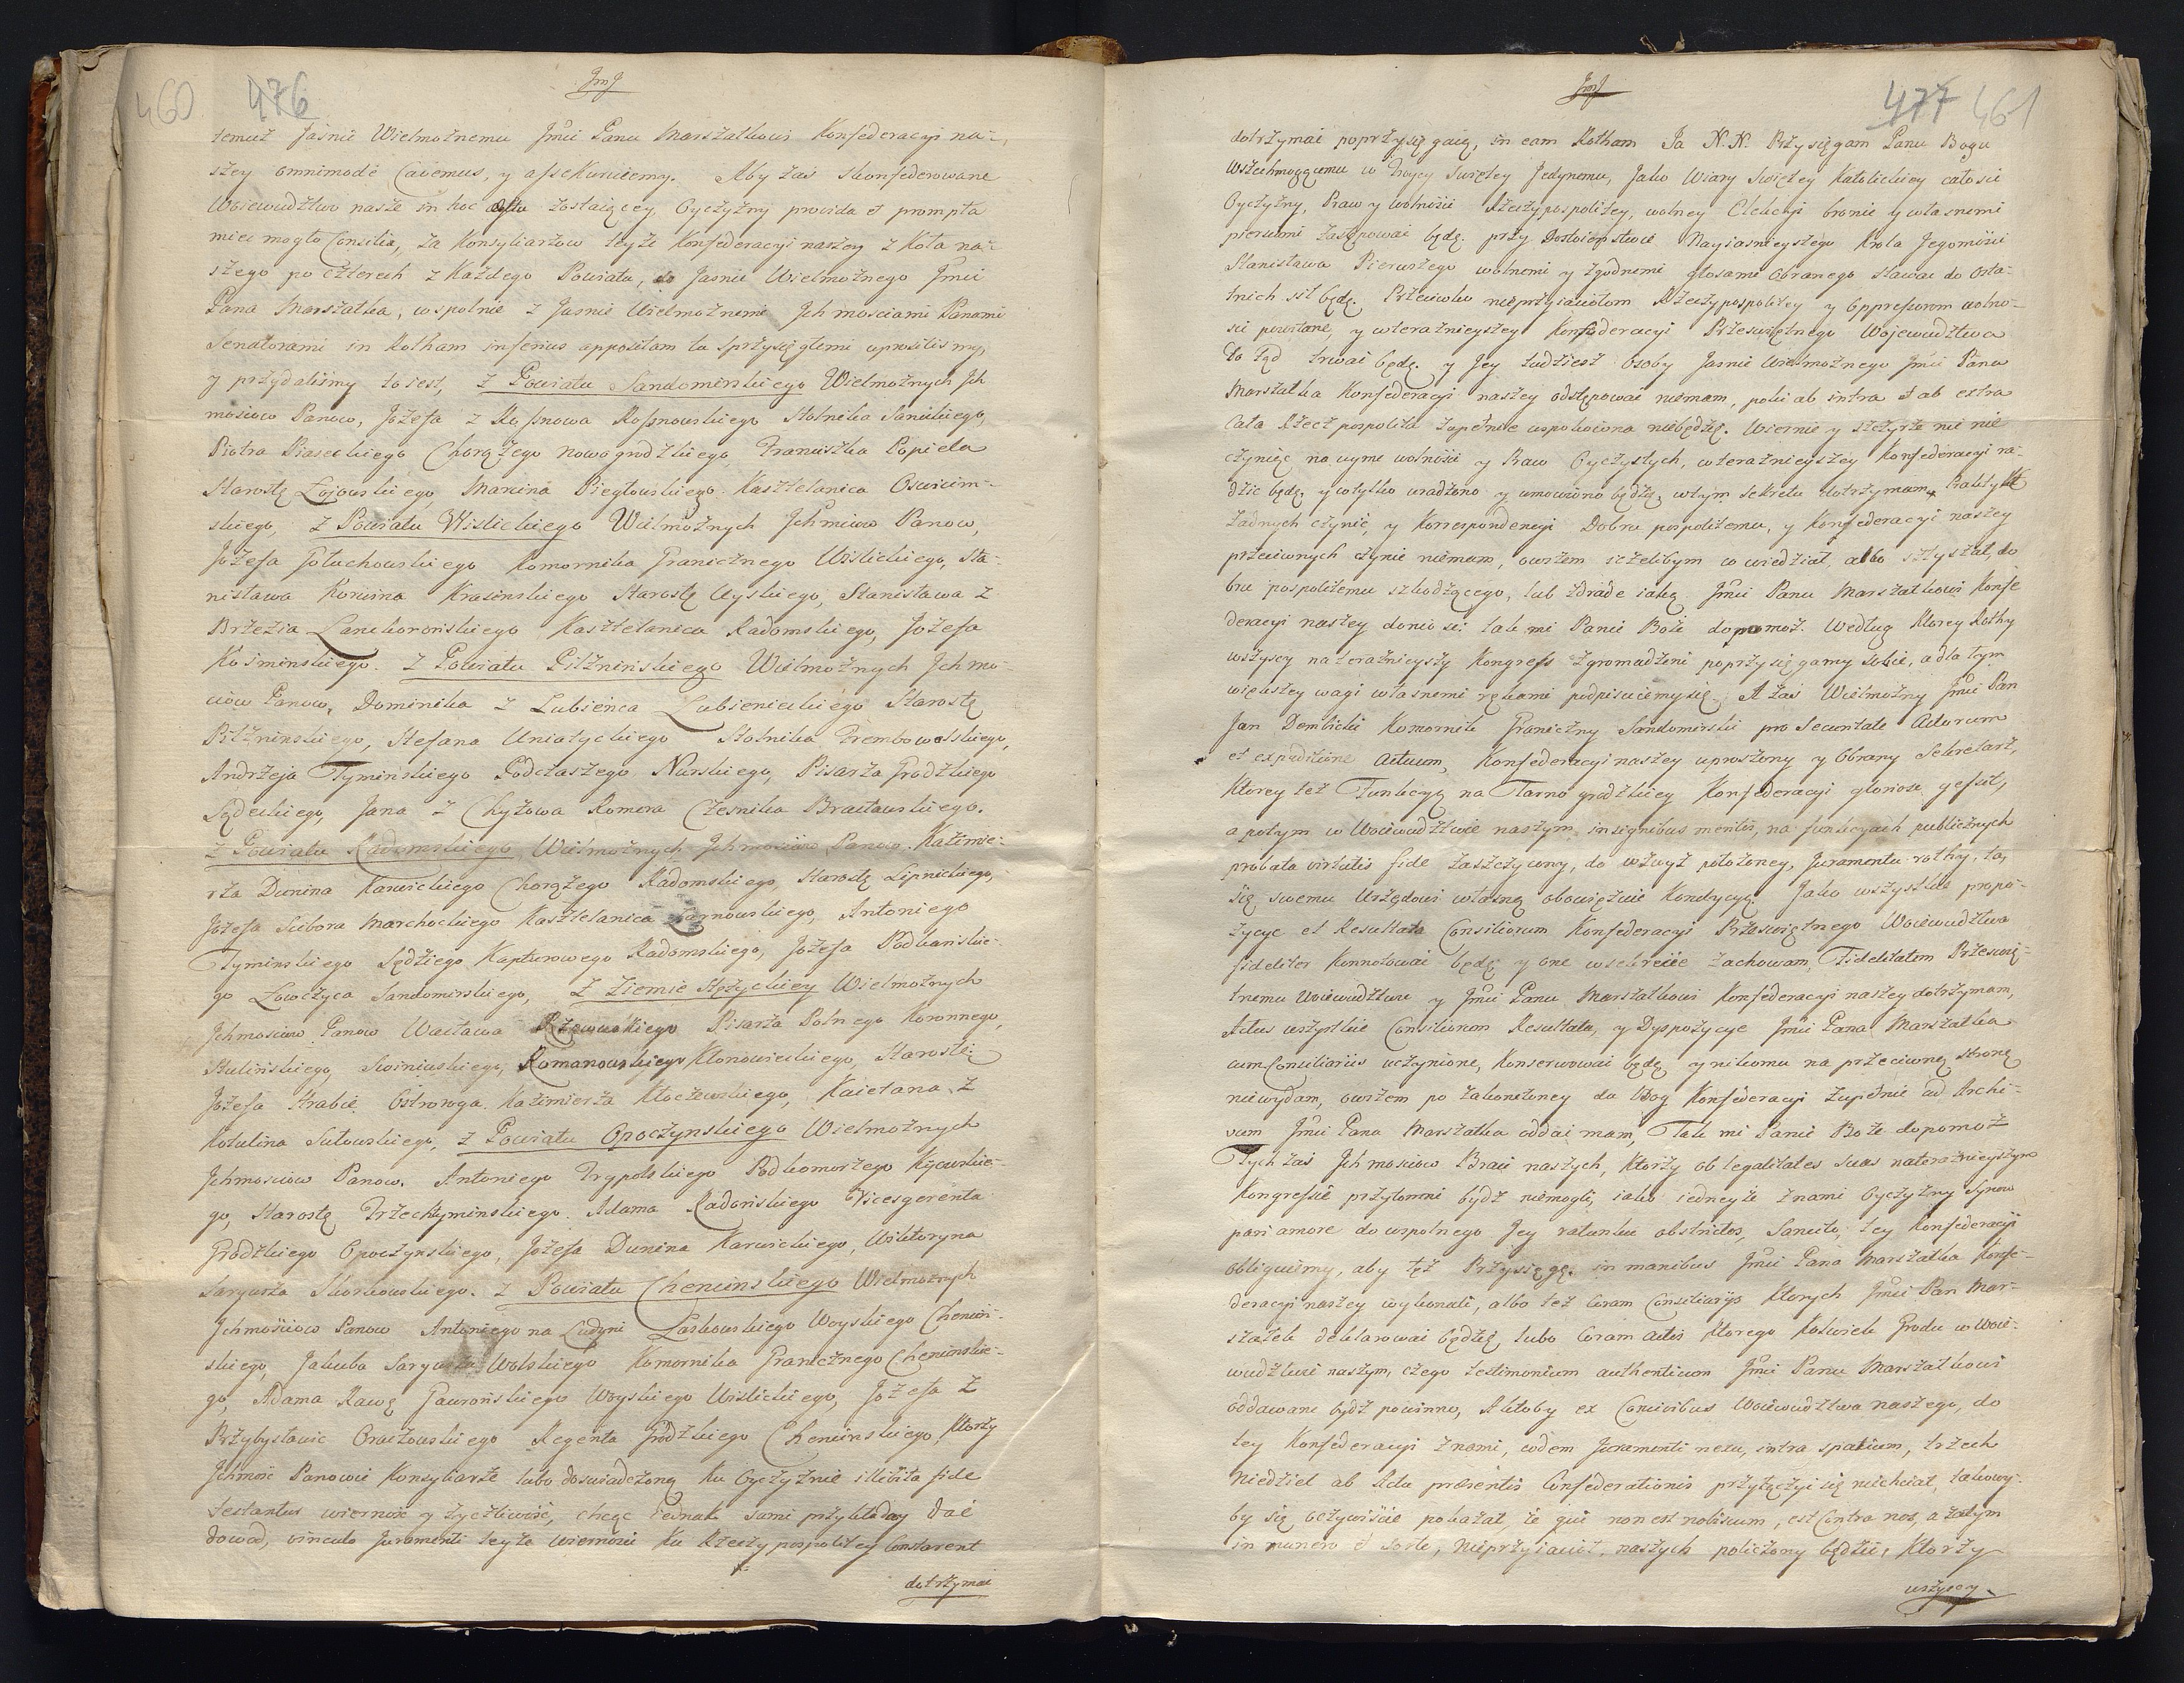 460 476
JmJ
temuż Jaśnie Wielmożnemu Jmci Panu Marszałkowi Konfederacyi na-
szey omnimodé Cavemus, y assekuruiemy. Aby zaś skonfederowane
Woiewudztwo nasze in hoc æstu zostaiącey Oyczyzny provida et prompta
miec mogło Consilia, za Konsyliarzow teyże Konfederacyi naszey z Koła na-
szego po czterech z Każdego Powiatu, do Jasnie Wielmożnego Jmci
Pana Marszałka, wspolnie z Jasnie Wielmożnemi Jchmosciami Panami
Senatorami in Rotham inferius appositam tu sprzysięgłemi uprosilismy,
y przydaliśmy to iest, z Powiatu Sandomirskiego Wielmożnych Jch
mosciow Panow, Jozefa z Rossnowa Rossnowskiego Stolnika Sanockiego,
Piotra Piaseckiego Chorążego nowogrodzkiego Franciszka Popiela
Starostę Łojowskiego Marcina Piegłowskiego Kasztelanica Oswiecim-
skiego, z Powiatu Wislickiego Wielmożnych Jchmciow Panow,
Jozefa Gołuchowskiego Komornika Granicznego Wislickiego, Sta-
nisława Korwina Krasinskiego Starostę Uyskiego, Stanisława z
Brzezia Lanckorońskiego Kasztelanica Radomskiego, Jozefa
Kośminskiego. z Powiatu Pilznińskiego Wielmożnych Jchmo-
sciow Panow, Dominika z Lubieńca Lubienieckiego Starostę
Pilzninskiego, Stefana Uniatyckiego Stolnika Trembowolskiego,
Andrzeja Tyminskiego Podczaszego Nurskiego, Pisarza Grodzkiego
Sądeckiego, Jana z Chyżowa Romera Czesnika Bracławskiego.
z Powiatu Radomskiego Wielmożnych Jchmosciow Panow Kazimie-
rza Dunina Karwickiego Chorążego Radomskiego, Starostę Lipnickiego,
Jozefa Scibora Marchockiego Kasztelanica Żarnowskiego, Antoniego
Tyminskiego Sędziego Kapturowego Radomskiego, Jozefa Podkańskie-
go Łowczyca Sandomirskiego, z Ziemie Stężyckiey Wielmożnych
Jchmosciow Panow Wacława Rzewuskiego Pisarza Polnego Koronnego,
Stulińskiego Swiniuskiego, Romanowskiego Kłonowieckiego, Starostę
Jozefa Hrabię Ostroroga Kazimierza Kłoczewskiego, Kaietana z
Kotulina Sułowskiego, z Powiatu Opoczynskiego Wielmożnych
Jchmosciow Panow. Antoniego Trypolskiego Podkomorzego Kijowskie-
go, Starostę Trzechtyminskiego. Adama Kadońskiego Vicesgerenta
Grodzkiego Opoczynskiego, Jozefa Dunina Karwickiego, Wiktoryna
Saryusza Skorkowskiego. z Powiatu Chencinskiego Wielmożnych
Jchmościow Panow Antoniego na Ludyni Łaskowskiego Woyskiego Chencin-
skiego, Jakuba Saryusza Wolskiego Komornika Granicznego Chencinskie-
go, Adama Rawę Gawrońskiego Woyskiego Wislickiego, Jozefa z
Przybysławic Oraczowskiego Regenta Grodzkiego Chencinskiego, Ktorzy
Jchmość Panowie Konsyliarze lubo doswiadczoną ku Oyczyznie illibita fide
testantur wiernosc y życzliwość, chcąc iednak sami przykładny dać
dowod, vinculo Juramenti teyże wiernosci ku Rzeczypospolitey Constarent
dotrzymać
JmJ
477 461
dotrzymać poprzysięgaią, in eam Rotham Ja N. N. Przysięgam Panu Bogu
Wszechmogącemu w Troycy Swiętey Jedynemu, Jako Wiary Swiętey Katolickiey całosci
Oyczyzny, Praw y wolnosci Rzeczypospolitey, wolney Elekcyi bronic y własnemi
piersiami zastępować będę. przy Dostoieństwie Nayiasnieyszego Krola Jegomości
Stanisława Pierwszego wolnemi y zgodnemi głosami Obranego stawac do Osta-
tnich sił będę. Przeciwko nieprzyiaciołom Rzeczypospolitey y Oppressorom wolno-
sci powstanę, y w terazniejszey Konfederacyi Przeswiętnego Wojewudztwa
to Ząd trwać będę. y Jey tudziesz Osoby Jasnie Wielmożnego Jmci Pana
Marszałka Konfederacyi naszey odstępować niemam, poki ab intra et ab extra
Cała Rzecz pospolita zupełnie uspokoiona niebędzie. Wiernie y Szczyrze nic nie
czyniąc na uymę wolności y Praw Oyczystych, w teraznieyszey Konfederacyi ra-
dzic będę, y co tylko uradzono y umowiono będzie, w tym sekretu dotrzymam, Praktyk
żadnych czynić, y Korrespondencyi Dobru pospolitemu, y Konfederacyi naszey
przeciwnych czynic niemam, owszem ieżelibym co wiedział, albo słyszał, do
bru pospolitemu szkodzącego, lub zdrade iaką Jmci Panu Marszałkowi Konfe
deracyi naszey doniosę: tak mi Panie Boże dopomoż. Według Ktorey Rothy
wszyscy na teraznieyszy Kongress zgromadzeni poprzysięgamy sobie, a dla tym
większey wagi własnemi rękami podpisuiemy się. A zaś Wielmożny Jmci Pan
Jan Dembicki Komornik Graniczny Sandomirski pro Securitate Actorum
et expeditione actuum, Konfederacyi naszey uproszony y Obrany Sekretarz,
Ktorey też Funkcyą na Tarnogrodzkiey Konfederacyi gloriose gessit,
a potym w Woiewudztwie naszym insignibus meritis, na funkcyach publicznych
probata virtutis fide zaszczycony, do wzwyż położoney, Juramentu rothy, ta,
się swemu Urzędowi własną obowięzuie Kondycyą: Jako wszystkie propo-
zycye et Resultata Consiliorum Konfederacyi Prześwietnego Woiewudztwa
fideliter Konnotować będę y one w sekrecie zachowam, Fidelitatem Przeswię-
tnemu Woiewudztwu y Jmci Panu Marszałkowi Konfederacyi naszey dotrzymam,
Actus wszystkie Consiliorum Resultata, y Dyspozycye Jmci Pana Marszałka
cum Consiliariis uczynione, Konserwować będę y nikomu na przeciwną stronę
niewydam, owszem po zakończoney da Bog Konfederacyi zupełnie ad Archi-
vum Jmci Pana Marszałka oddać mam, Tak mi Panie Boże dopomoż
Tych zaś Jchmosciow Braci naszych, Ktorzy ob legalitates suas na teraznieyszym
Kongressie przytomni bydź niemogli, iako iedneyże z nami Oyczyzny Synow
pari amore do wspolnego Jey ratunku obstrictos, Sancito, tey Konfederacyi
obliguiemy, aby też Przysięgę. in manibus Jmci Pana Marszałka Konfe-
deracyi naszey wykonali, albo też Coram Consiliarijs Ktorych Jmci Pan Mar-
szałek deklarować będzie, lubo Coram actis Ktorego Kolwiek Grodu w Woie-
wudztwie naszym, czego testimonium authenticum Jmci Panu Marszałkowi
oddawane bydź powinno, A ktoby ex Concivibus Woiewudztwa naszego, do
tey Konfederacyi z nami, eodem Juramenti nexu, intra spatium, trzech
Niedziel ab Actu præsentis Confederationis przyłączyć się niechciał, takowy-
by się oczywiście pokazał, że qui non est nobiscum, est Contra nos, a zatym
in numero et sorte, nieprzyiacioł, naszych policzony będzie, Ktorzy
wszyscy